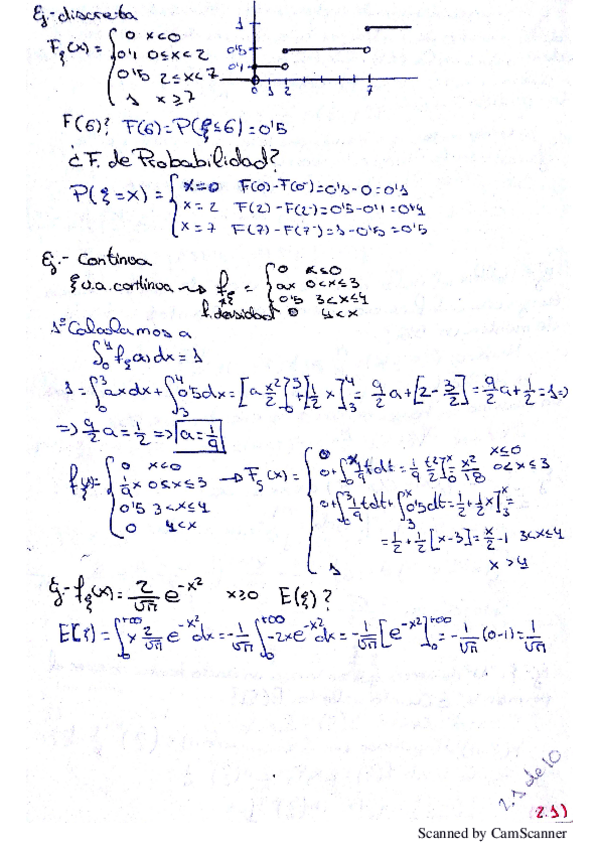 Ej.- discreta
F_ξ(x) = { 0 x<0
0'1 0≤x<2
0'5 2≤x<7
1 x≥7
1
0'5
0'1
0 1 2 7
F(6)? F(6)=P(ξ≤6)=0'5
¿F. de Probabilidad?
P(ξ=x) = { x=0 F(0)-F(0⁻)=0'1-0=0'1
x=2 F(2)-F(2⁻)=0'5-0'1=0'4
x=7 F(7)-F(7⁻)=1-0'5=0'5
Ej.- Continua
ξ v.a. continua → f_ξ = { 0 x≤0
ax 0<x≤3
0'5 3<x≤4
0 4<x
f. densidad
1º Calculamos a
∫₀⁴ f_ξ(x)dx = 1
1 = ∫₀³ ax dx + ∫₃⁴ 0'5dx = [a x²/2]₀³ + [1/2 x]₃⁴ = 9/2 a + [2 - 3/2] = 9/2 a + 1/2 = 1 =>
=> 9/2 a = 1/2 => a = 1/9
f_ξ(x) = { 0 x<0
1/9 x 0≤x≤3
0'5 3<x≤4
0 4<x
→ F_ξ(x) = { 0 x≤0
0+∫₀ˣ 1/9 t dt = 1/9 t²/2]₀ˣ = x²/18 0<x≤3
0+∫₀³ 1/9 t dt + ∫₃ˣ 0'5dt = 1/2 + 1/2 x]₃ˣ =
= 1/2 + 1/2 [x-3] = x/2 - 1 3<x≤4
1 x>4
Ej.- f_ξ(x) = 2/√π e^(-x²) x≥0 E(ξ)?
E(ξ) = ∫₀^(+∞) x 2/√π e^(-x²) dx = -1/√π ∫₀^(+∞) -2x e^(-x²) dx = -1/√π [e^(-x²)]₀^(+∞) = -1/√π (0-1) = 1/√π
2.1 de 10
2.1)
Scanned by CamScanner